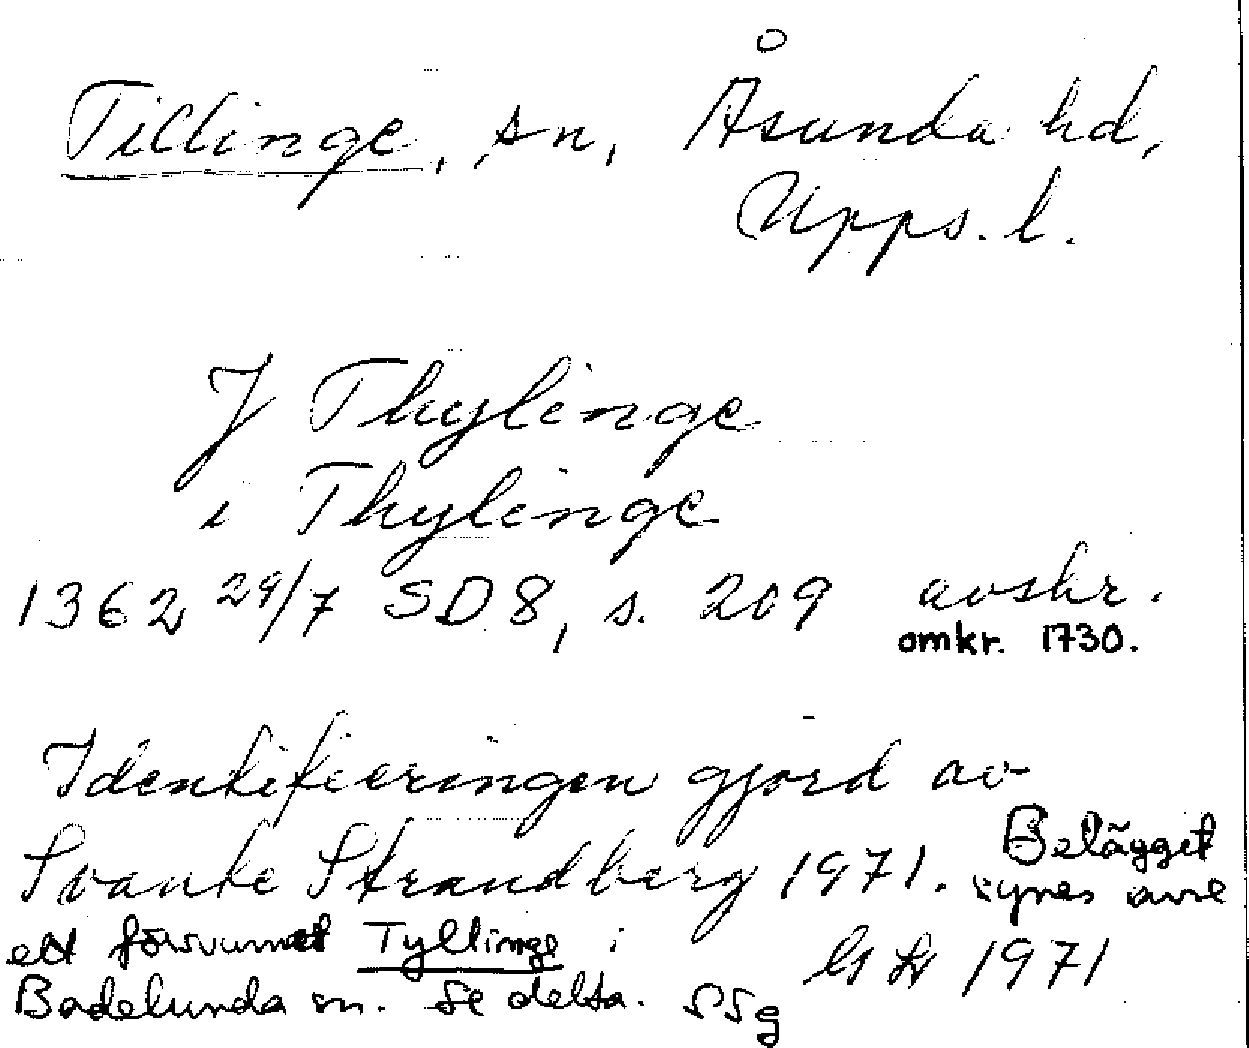 Tillinge, sn, Åsunda hd,
Upps. l.
J Thylinge
i Thylinge
1362 29/7 SD 8, s. 209 avskr.
omkr. 1730.
Identifieringen gjord av
Svante Strandberg 1971. Belägget
synes avse
ett försvunnet Tyllinge i
GW 1971
Badelunda sn. Se detta. SSg